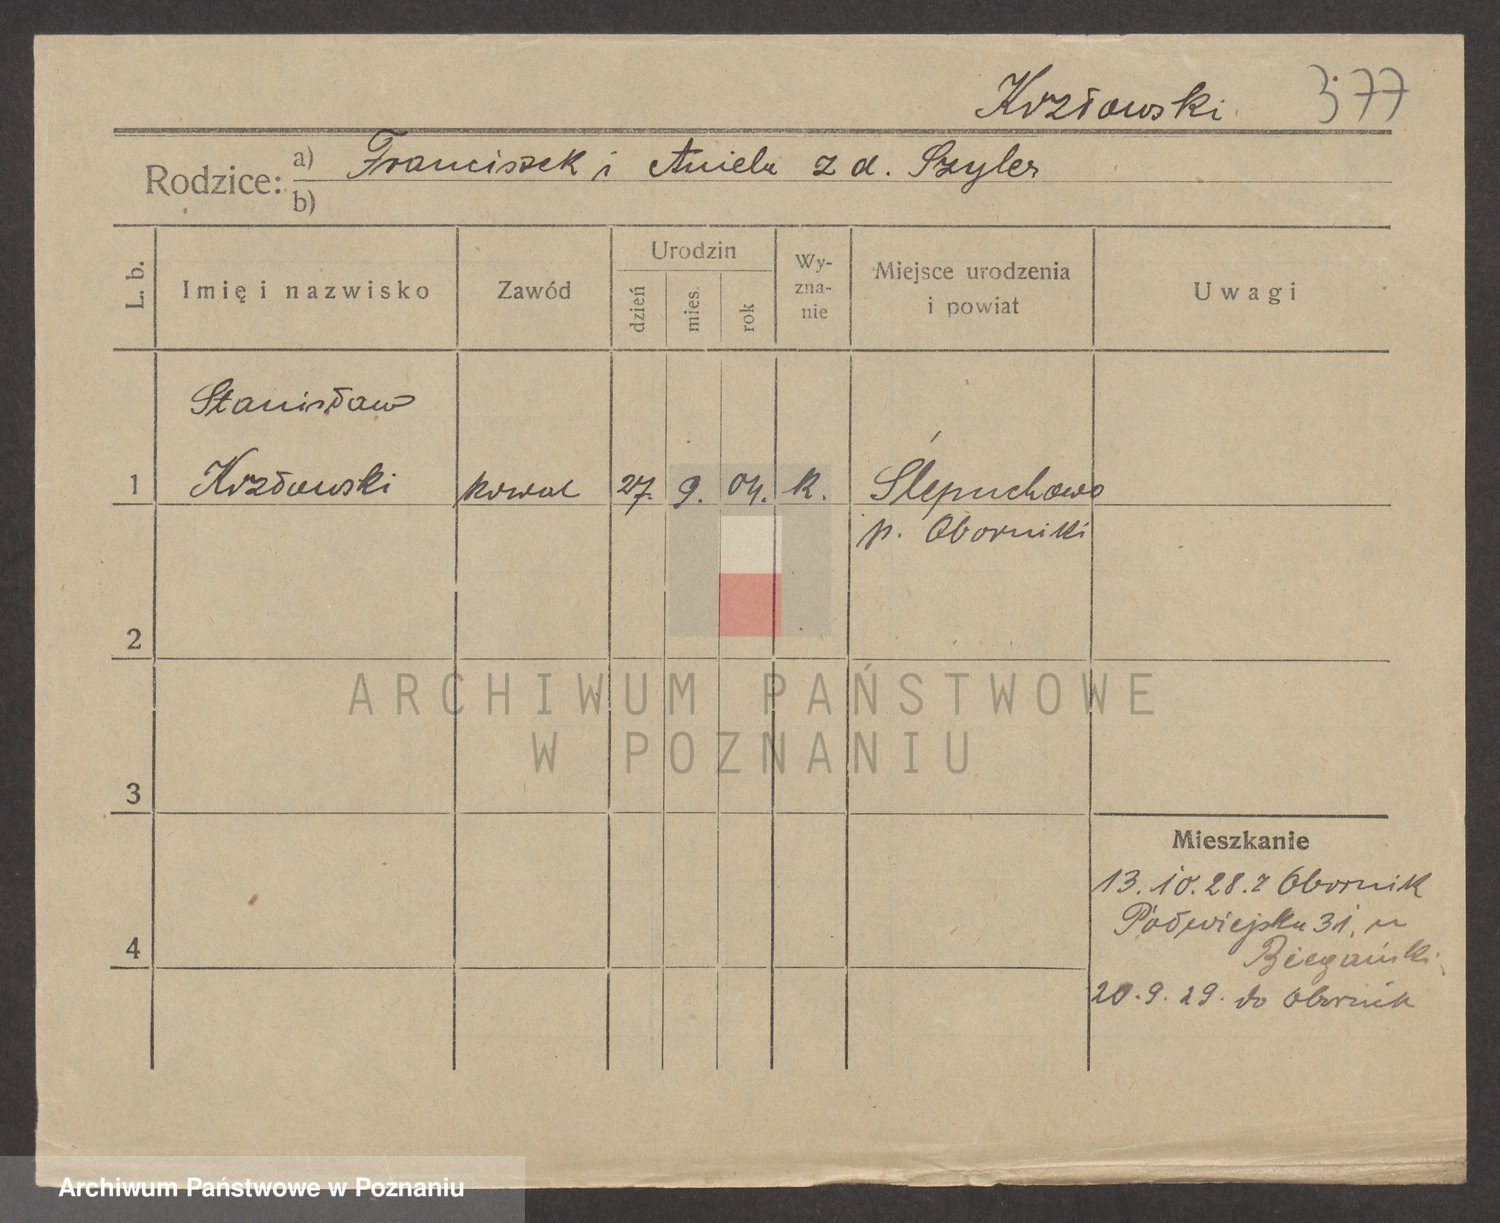 Krzłowski 377
Rodzice: a) Franciszek i Aniela z d. Szyler
b)
L. b. Imię i nazwisko Zawód Urodzin dzień mies. rok Wy-zna-nie Miejsce urodzenia i powiat Uwagi
Stanisław
1 Krzłowski kowal 27. 9. 04. k. Ślepuchowo
p. Oborniki
2
ARCHIWUM PAŃSTWOWE
W POZNANIU
3
Mieszkanie
13.10.28. z Obornik
Półwiejska 31, u
4 Biegański
20.9.29. do Obornik
Archiwum Państwowe w Poznaniu